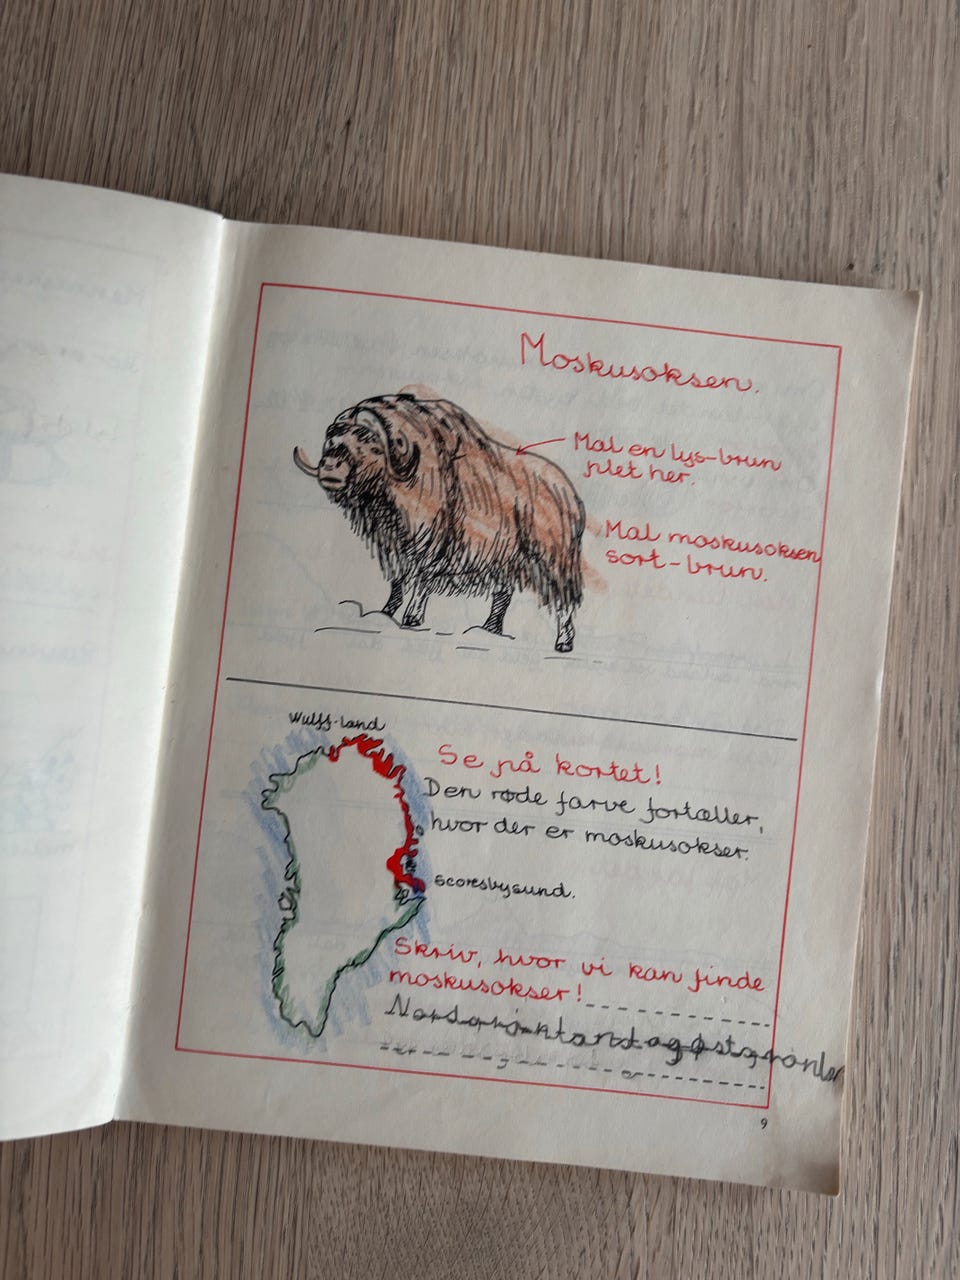 Moskusoksen.
Mal en lys-brun
plet her.
Mal moskusoksen
sort-brun.
Wulff-land
Se på kortet!
Den røde farve fortæller,
hvor der er moskusokser.
Scoresbysund.
Skriv, hvor vi kan finde
moskusokser!
Nordgrønland og østgrønlan
9